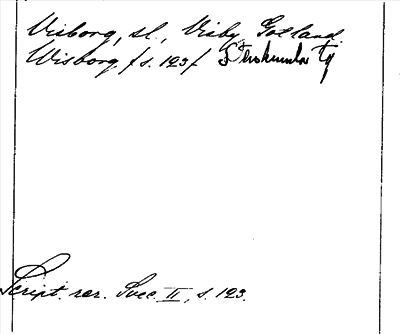 Visborg, sl., Visby, Gotland.
Wisborg /s. 123/
Script. rer. Svec. II, s. 123.